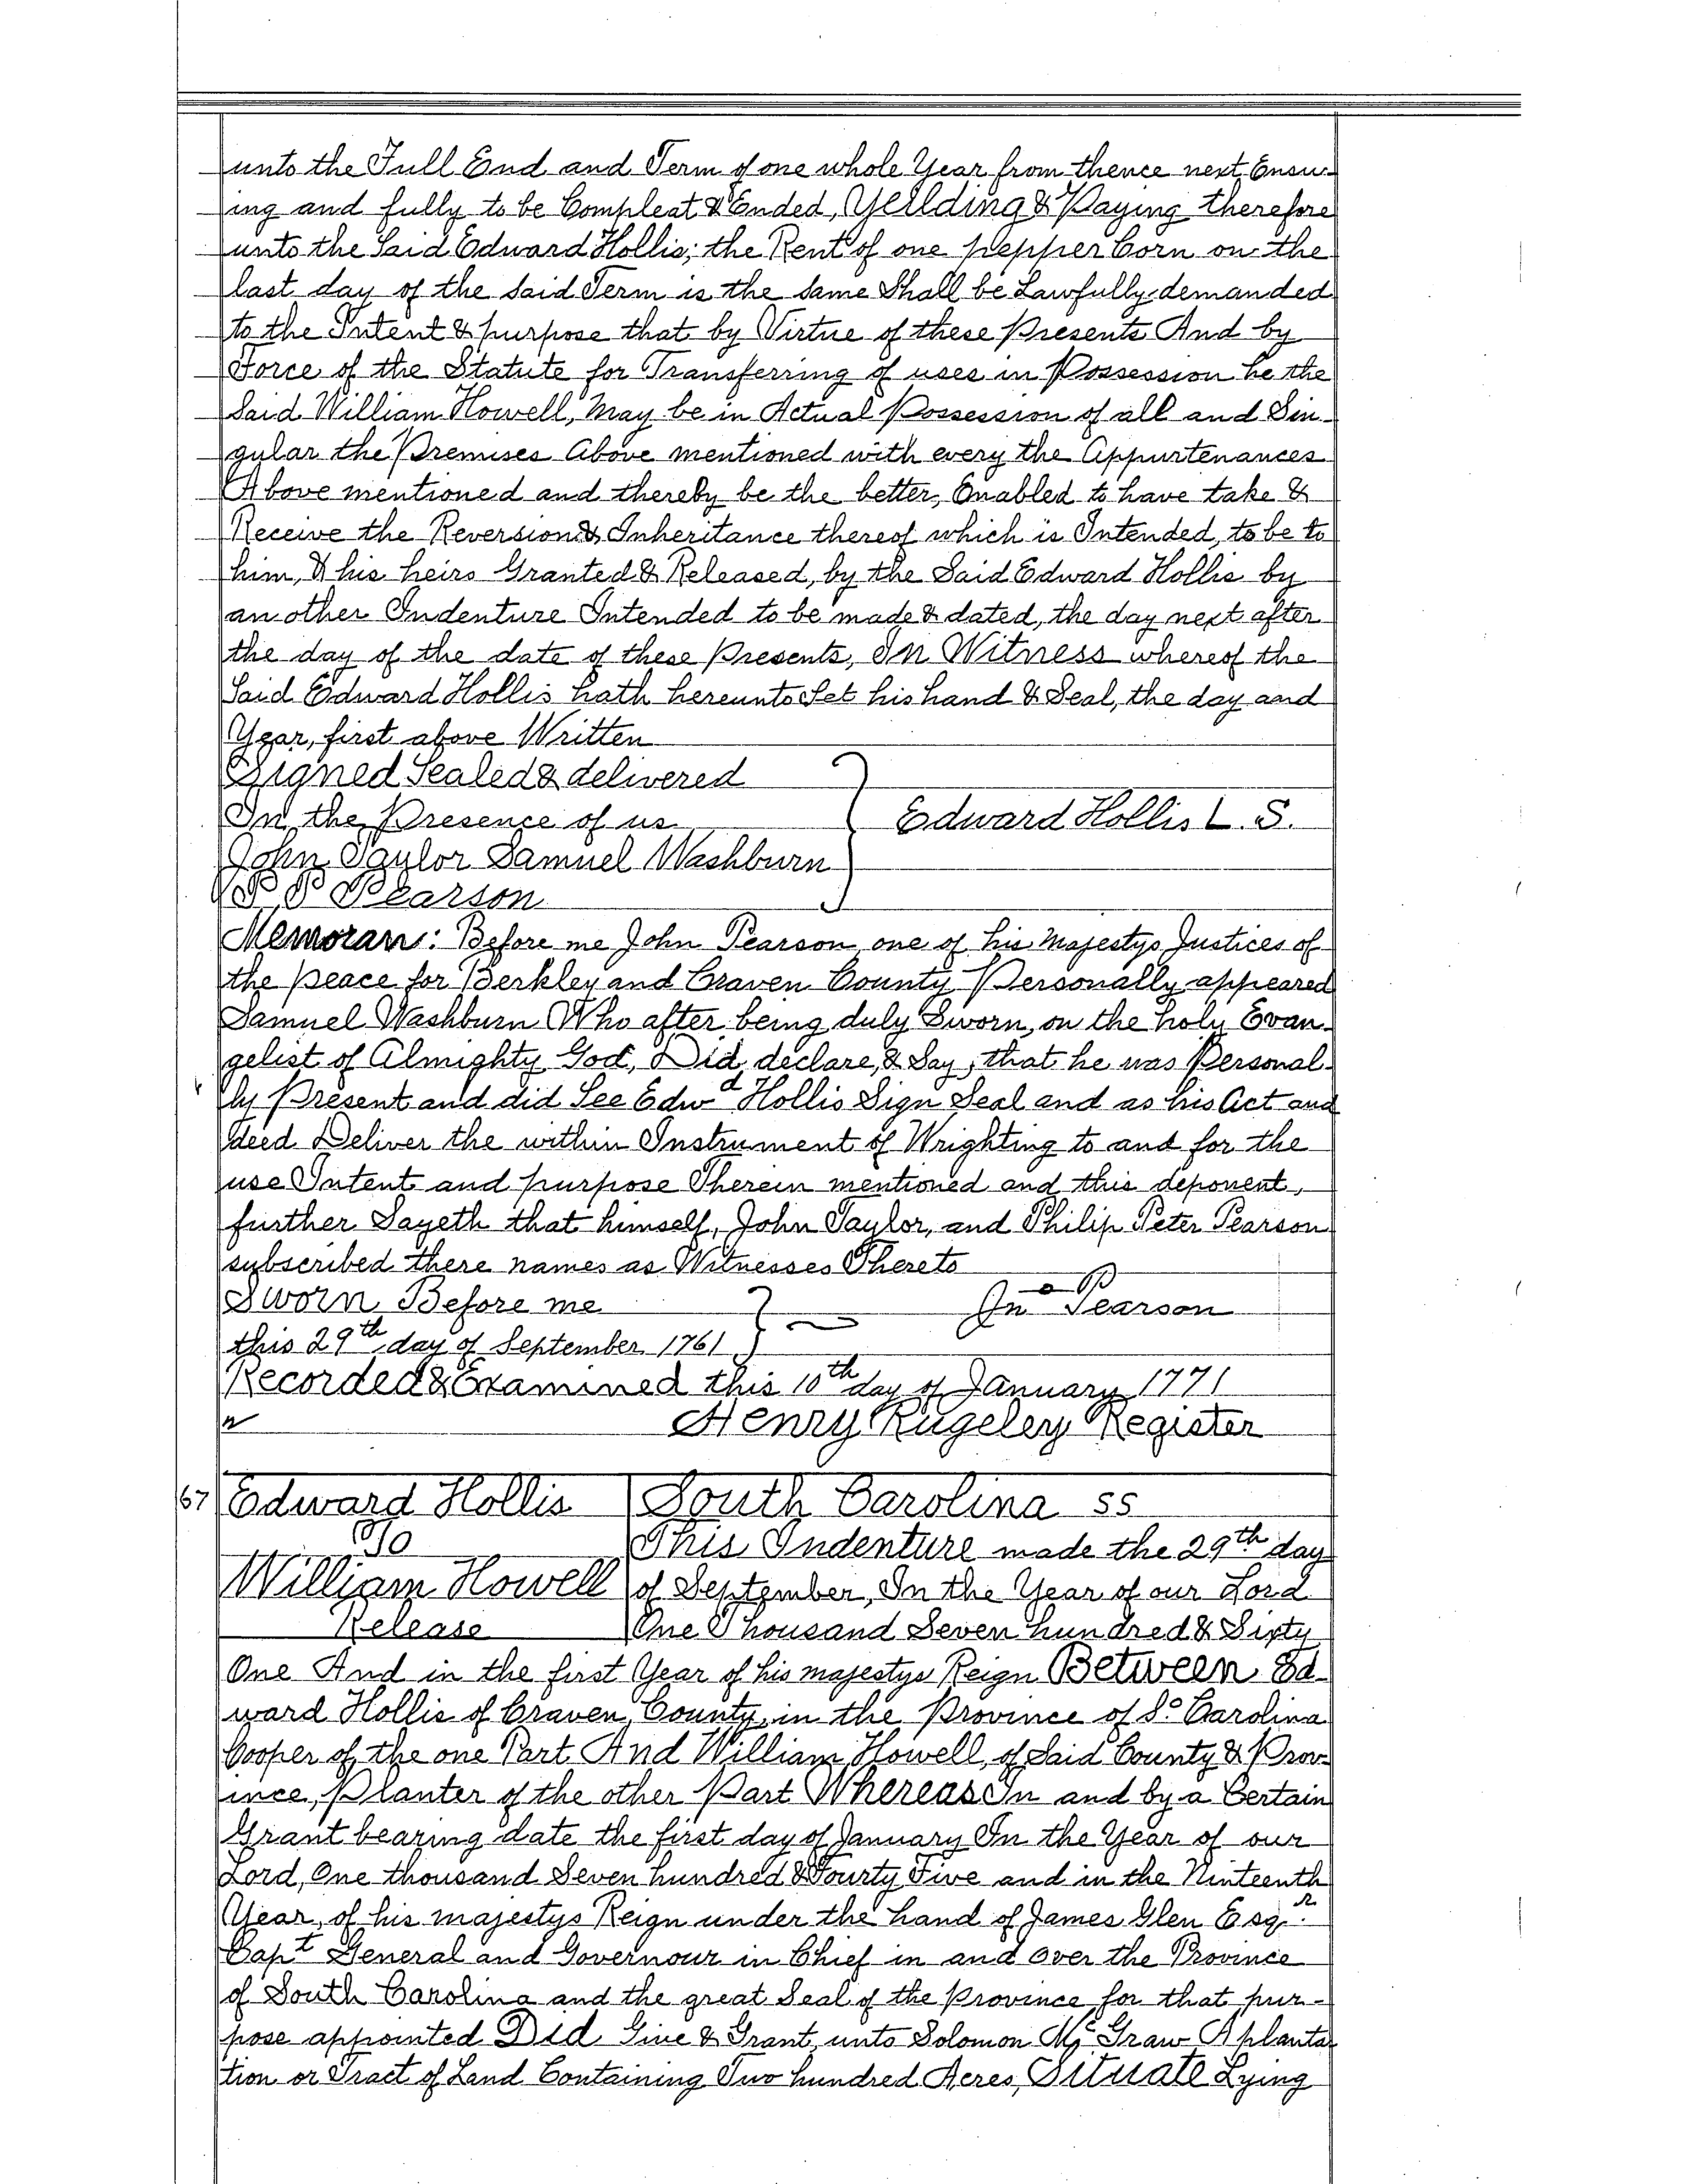 unto the Full End and Term of one whole Year from thence next Ensu-
ing and fully to be Compleat & Ended, Yeilding & Paying therefore
unto the Said Edward Hollis; the Rent of one pepper Corn on the
last day of the Said Term is the Same Shall be Lawfully demanded
to the Intent & purpose that by Virtue of these Presents And by
Force of the Statute for Transferring of uses in Possession he the
Said William Howell, May be in Actual Possession of all and Sin-
gular the Premises Above mentioned with every the Appurtenances
Above mentioned and thereby be the better, Enabled to have take &
Receive the Reversion & Inheritance thereof which is Intended, to be to
him, & his heirs Granted & Released, by the Said Edward Hollis by
an other Indenture Intended to be made & dated, the day next after
the day of the date of these Presents, In Witness whereof the
Said Edward Hollis hath hereunto Set his hand & Seal, the day and
Year, first above Written
Signed Sealed & delivered
In the Presence of us
Edward Hollis L. S.
John Taylor Samuel Washburn
P P Pearson
Memoran: Before me John Pearson one of his Majestys Justices of
the peace for Berkley and Craven County Personally appeared
Samuel Washburn Who after being duly Sworn, on the holy Evan-
gelist of Almighty God, Did declare, & Say, that he was Personal-
ly Present and did See Edwd Hollis Sign Seal and as his Act and
deed Deliver the within Instrument of Wrighting to and for the
use Intent and purpose Therein mentioned and this deponent,
further Sayeth that himself, John Taylor, and Philip Peter Pearson
subscribed there names as Witnesses Thereto
Sworn Before me
Jno Pearson
this 29th day of September 1761
Recorded & Examined this 10th day of January 1771
Henry Rugeley Register
67 Edward Hollis South Carolina ss
To This Indenture made the 29th day
William Howell of September, In the Year of our Lord
Release One Thousand Seven hundred & Sixty
One And in the first Year of his majestys Reign Between Ed-
ward Hollis of Craven County in the Province of So Carolina
Cooper of the one Part And William Howell, of Said County & Prov-
ince, Planter of the other Part Whereas In and by a Certain
Grant bearing date the first day of January In the Year of our
Lord, One thousand Seven hundred & Fourty Five and in the Ninteenth
Year, of his majestys Reign under the hand of James Glen Esqr.
Capt General and Governour in Chief in and over the Province
of South Carolina and the great Seal of the Province for that pur-
pose appointed Did Give & Grant, unto Solomon Mc Graw A planta
tion or Tract of Land Containing Two hundred Acres, Situate Lying